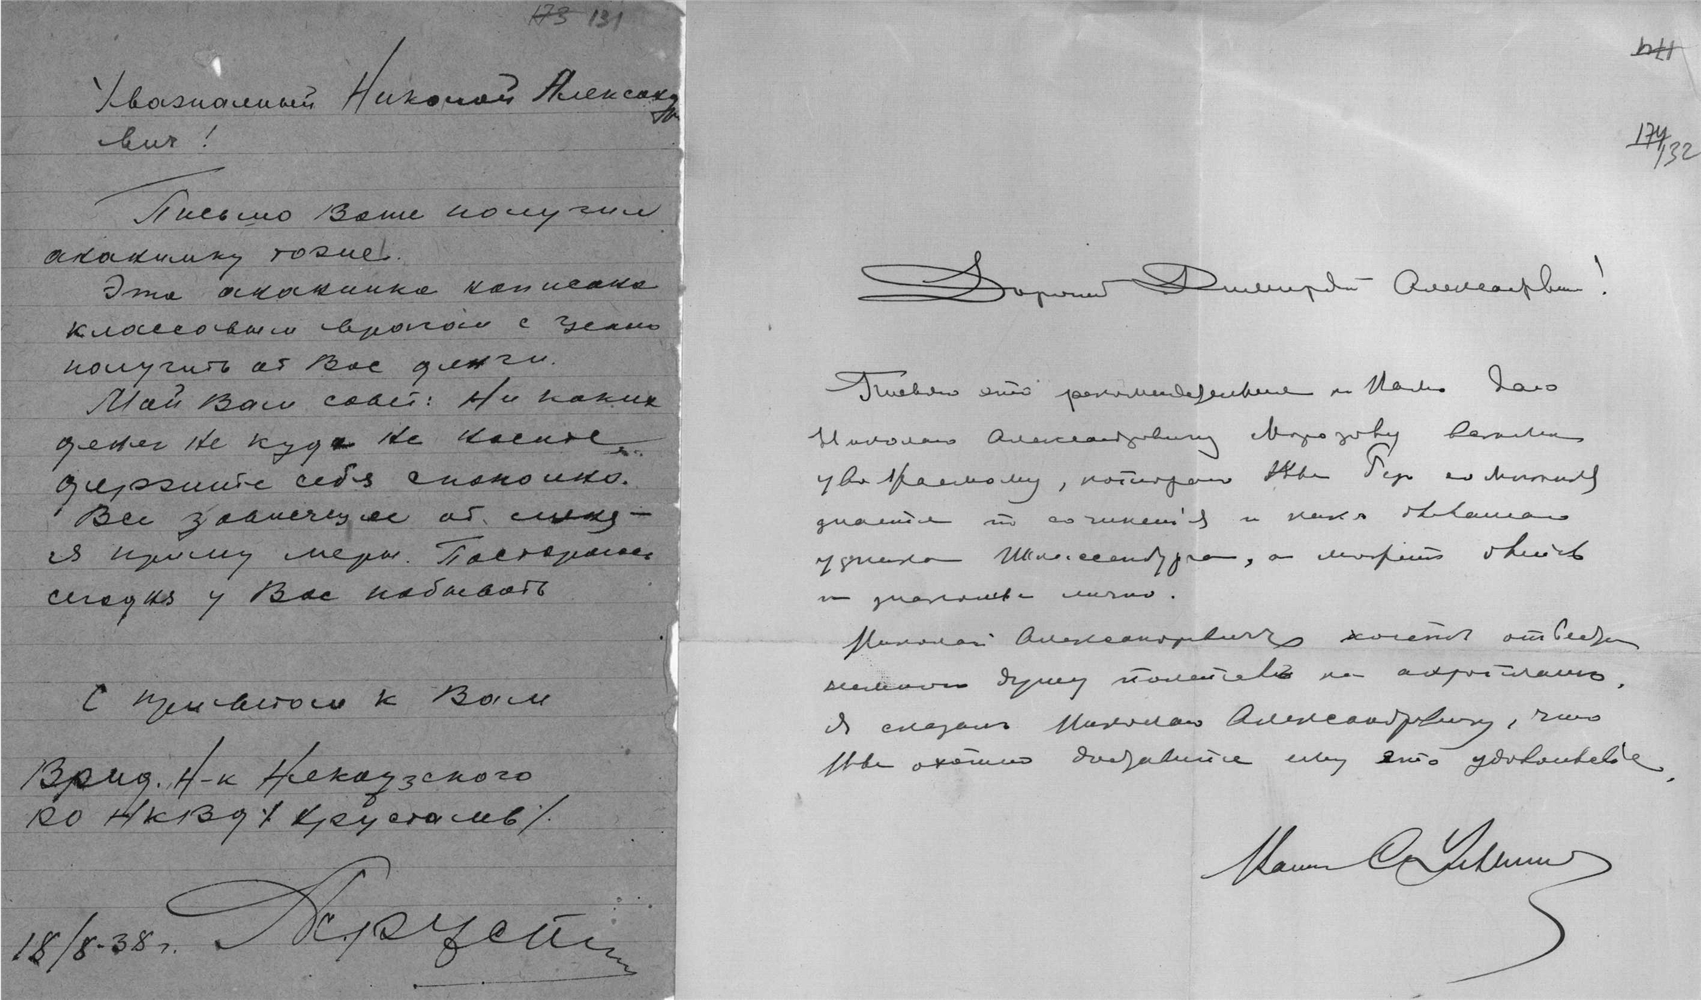 173 131
Уважаемый Николай Александр
вич!
Письмо Ваше получил
анонимку тоже.
Эта анонимка написана
классовым врагом с целью
получить от Вас денги.
Мой Вам совет: Ни каких
денег не куда не носите,
держите себя спокойно.
Все зависящее от меня –
я приму меры. Постараюсь
сегодня у Вас побывать
С приветом к Вам
Врид. Н-к Некоузского
РО НКВД /Хрусталев/.
18/8-38 г.
174
132
Дорогой Александрович!
Письмо это рекомендательное и Вам даю
Николаю Александровичу Морозову
уважаемому, которого Вы
знаете по сочинениям и как бывшаго
узника Шлиссельбурга, а может быть
и знакомы лично.
Николай Александровичъ хочетъ отвести
немного душу полетать на аэроплане.
Я сказалъ Николаю Александровичу, что
Вы охотно доставите ему это удовольствие.
Вашъ